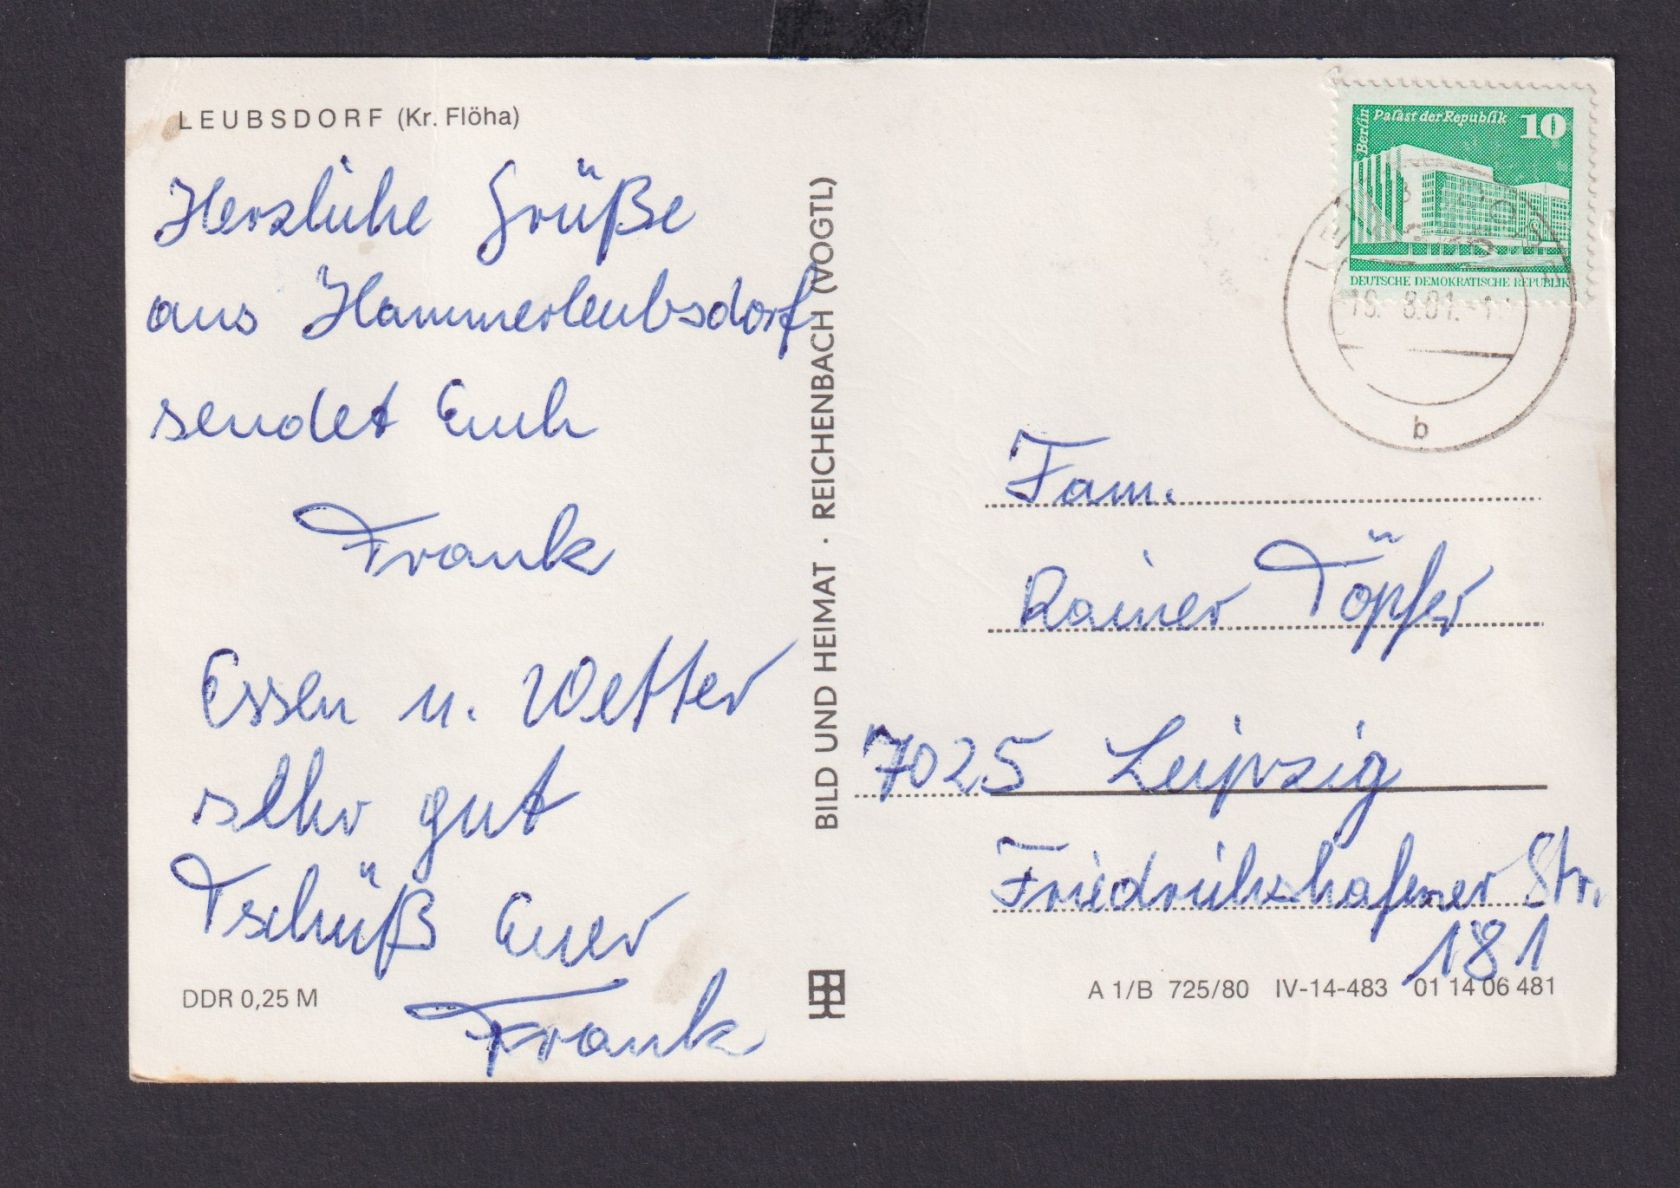 LEUBSDORF (Kr. Flöha)
Herzliche Grüße
aus Hammerleubsdorf
sendet Euch
Frank
Essen u. Wetter
sehr gut
Tschüß Euer
Frank
DDR 0,25 M
BILD UND HEIMAT · REICHENBACH (VOGTL)
Berlin
Palast der Republik
10
DEUTSCHE DEMOKRATISCHE REPUBLIK
b
Fam.
Rainer Töpfer
7025 Leipzig
Friedrichshafener Str.
181
A 1/B 725/80 IV-14-483 01 14 06 481